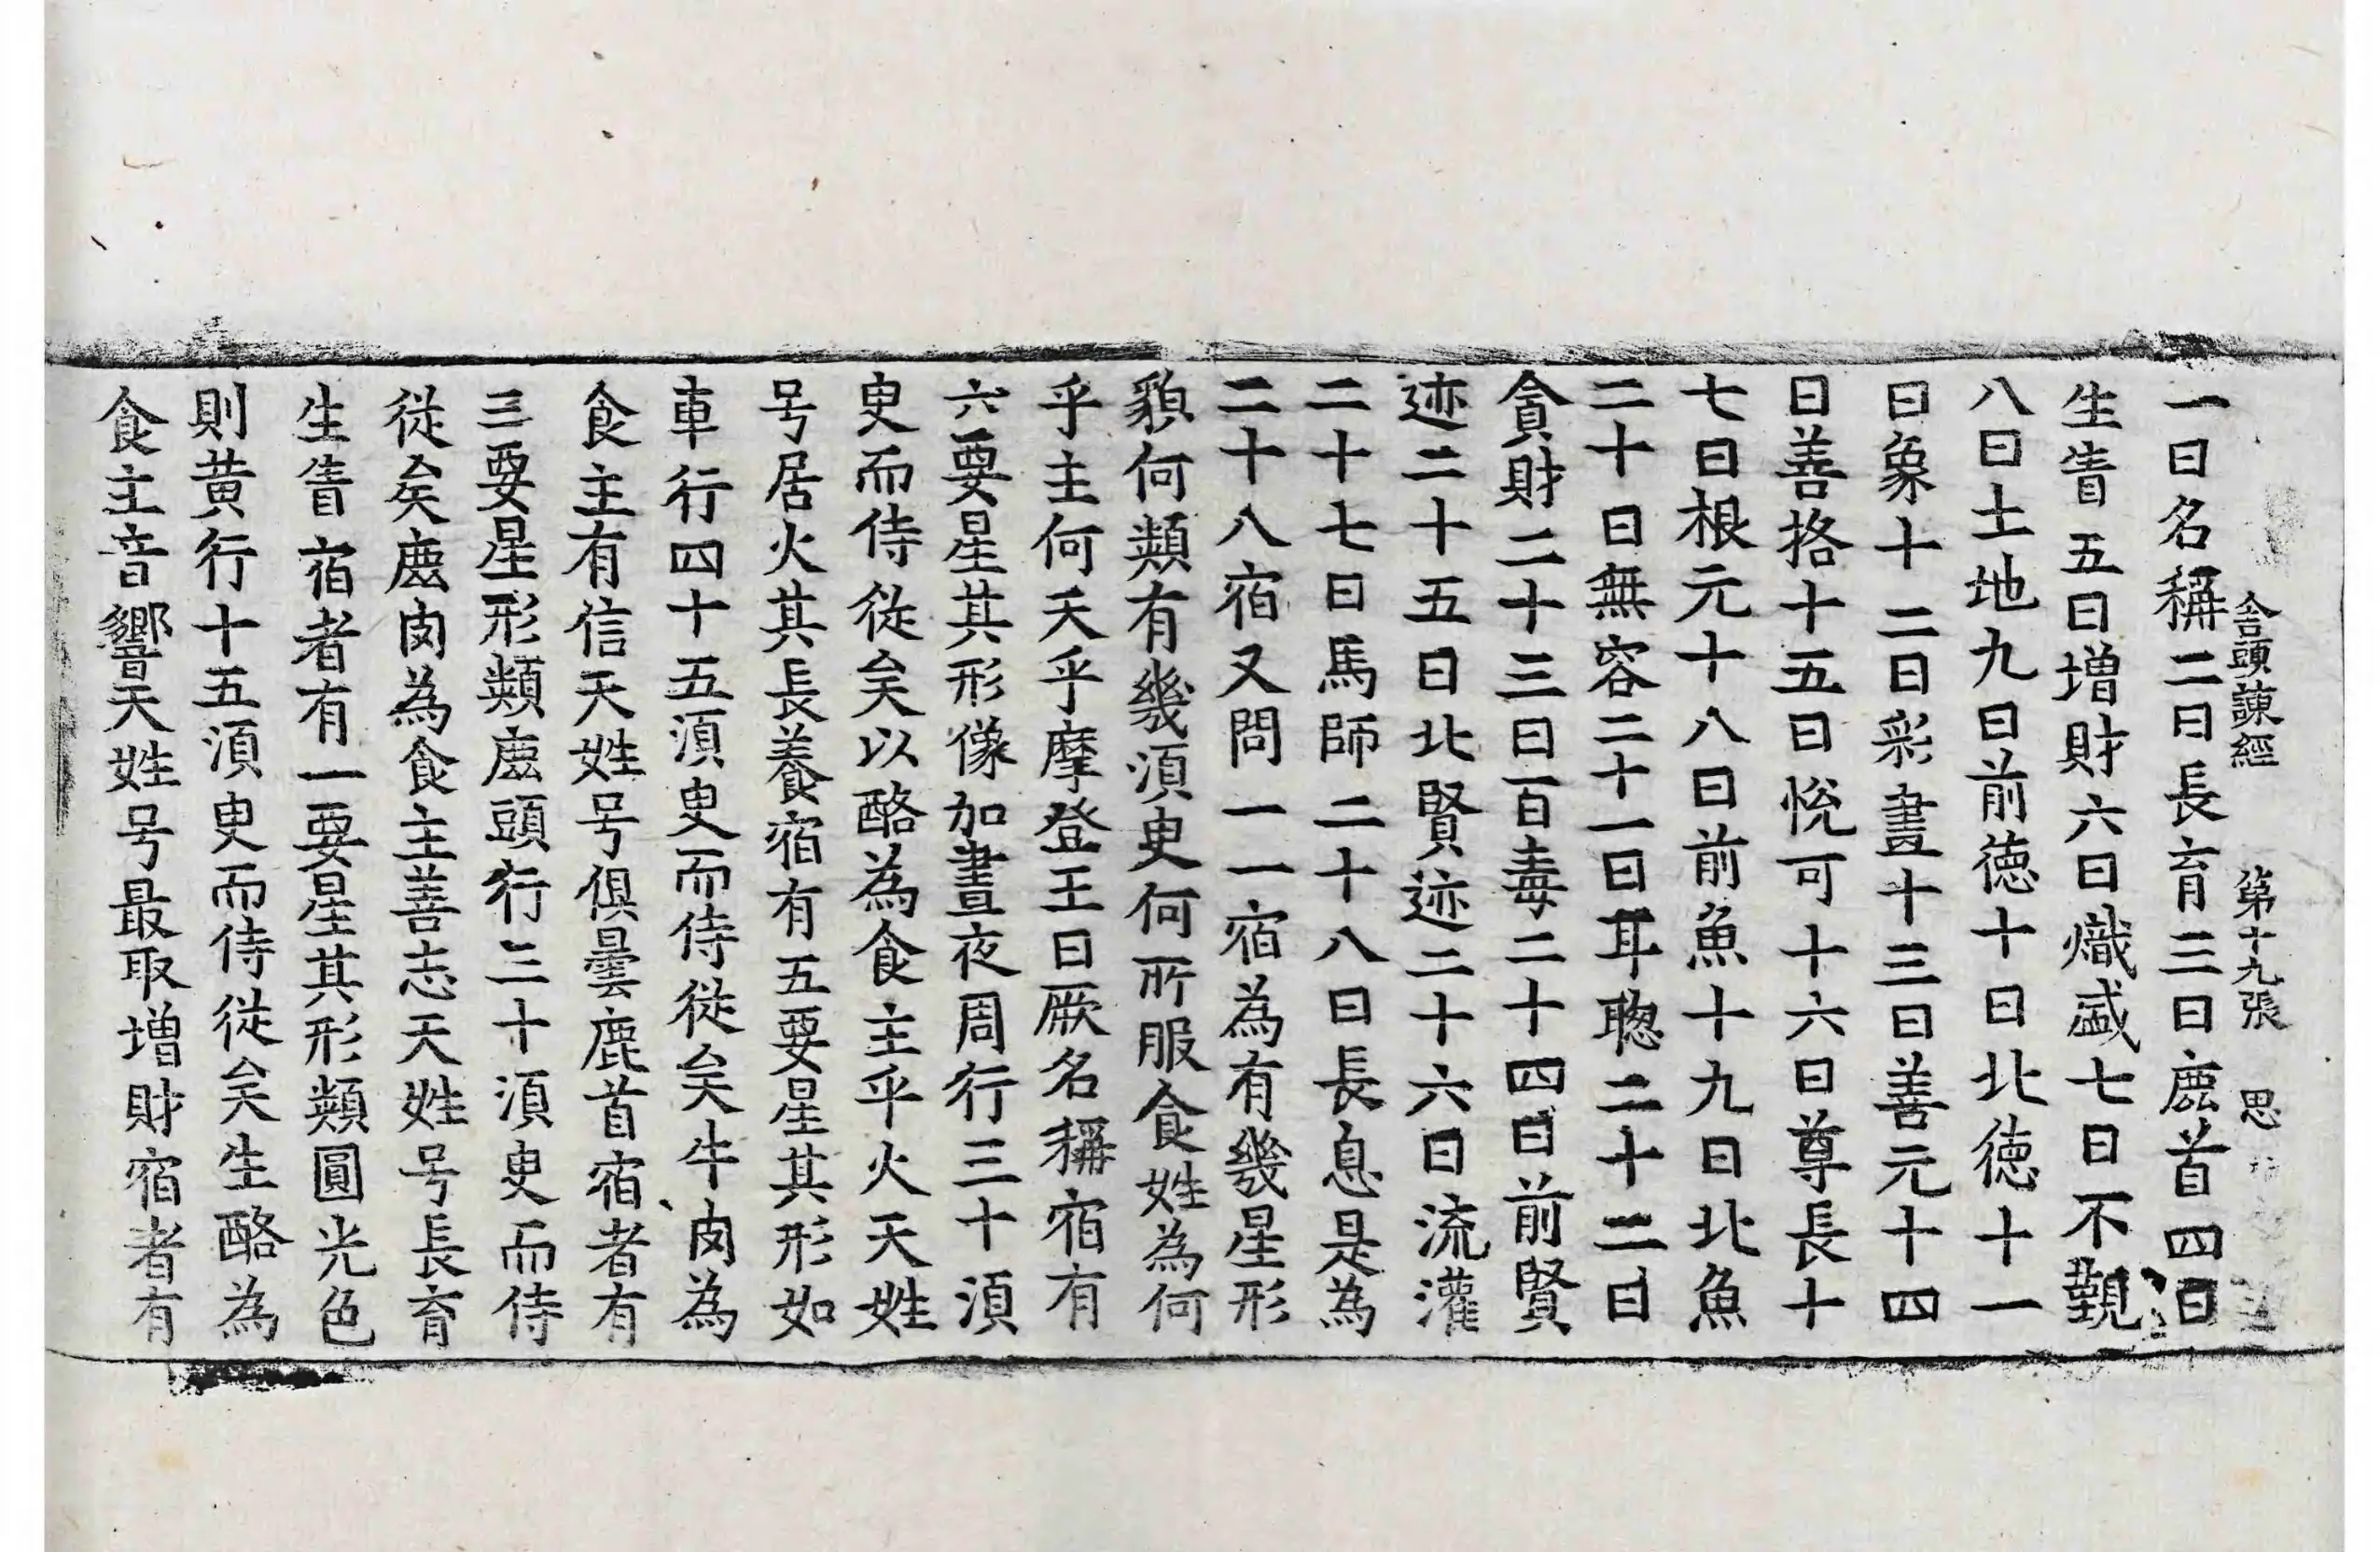 舎頭諫經 第十九張 思
一曰名稱二曰長育三曰鹿首四曰
生眚五曰増財六曰熾盛七曰不覲
八曰土地九曰前徳十曰北徳十一
曰象十二曰彩畫十三曰善元十四
曰善挌十五曰恱可十六曰尊長十
七曰根元十八曰前魚十九曰北魚
二十曰無容二十一曰耳聦二十二曰
貪財二十三曰百毒二十四曰前賢
迹二十五曰北賢迹二十六曰流灌
二十七曰馬師二十八曰長息是為
二十八宿又問一一宿為有幾星形
貌何類有幾湏臾何所服食姓為何
乎主何天乎摩登王曰厥名稱宿有
六要星其形像加晝夜周行三十湏
臾而侍從矣以酪為食主乎火天姓
号居火其長養宿有五要星其形如
車行四十五湏臾而侍從矣牛肉為
食主有信天姓号俱曇鹿首宿者有
三要星形類鹿頭行三十湏臾而侍
從矣鹿肉為食主善志天姓号長育
生眚宿者有一要星其形類圓光色
則黄行十五湏臾而侍從矣生酪為
食主音響天姓号最取増財宿者有